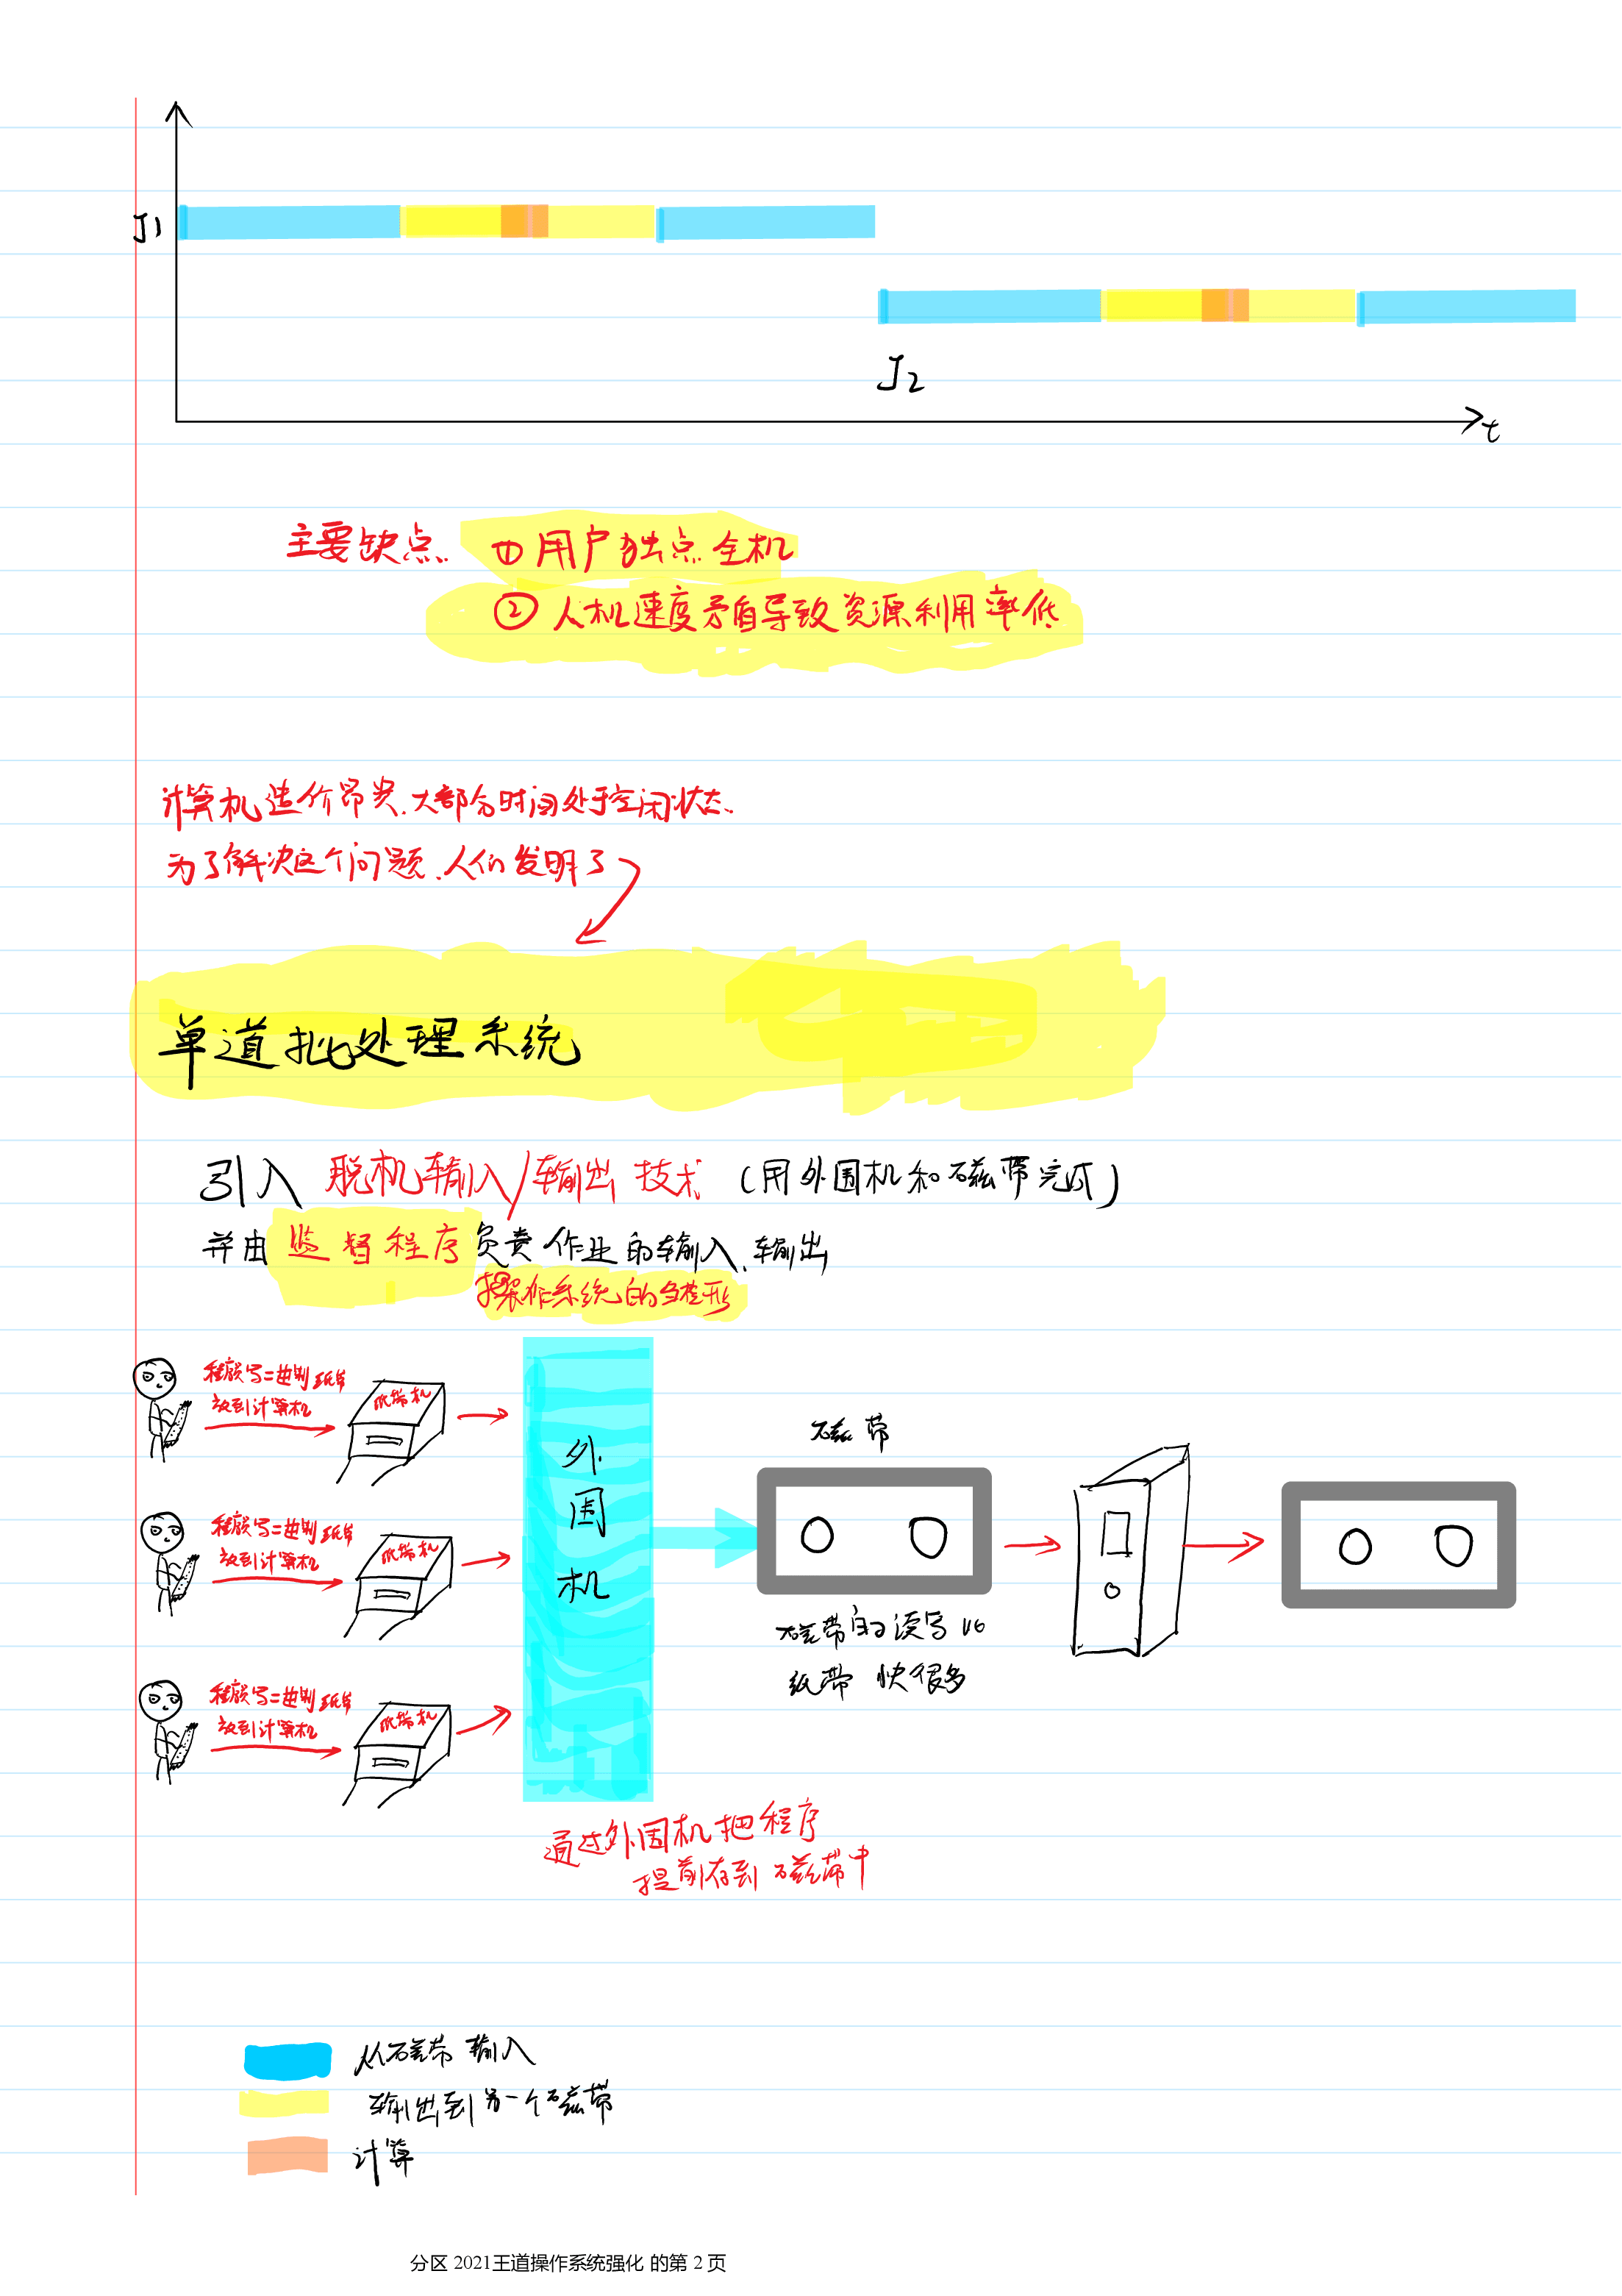 J1
J2
t
主要缺点
① 用户独占全机
② 人机速度矛盾导致资源利用率低
计算机造价昂贵.大部分时间处于空闲状态.
为了解决这个问题.人们发明了
单道批处理系统
引入 脱机输入/输出技术 (用外围机和磁带完成)
并由 监督程序 负责作业的输入、输出
操作系统的雏形
纸带机
放到计算机
外围机
磁带
纸带机
放到计算机
磁带的读写比
纸带 快很多
纸带机
放到计算机
通过外围机把程序
提前存到磁带中
从磁带输入
输出到另一个磁带
计算
分区 2021王道操作系统强化 的第 2 页